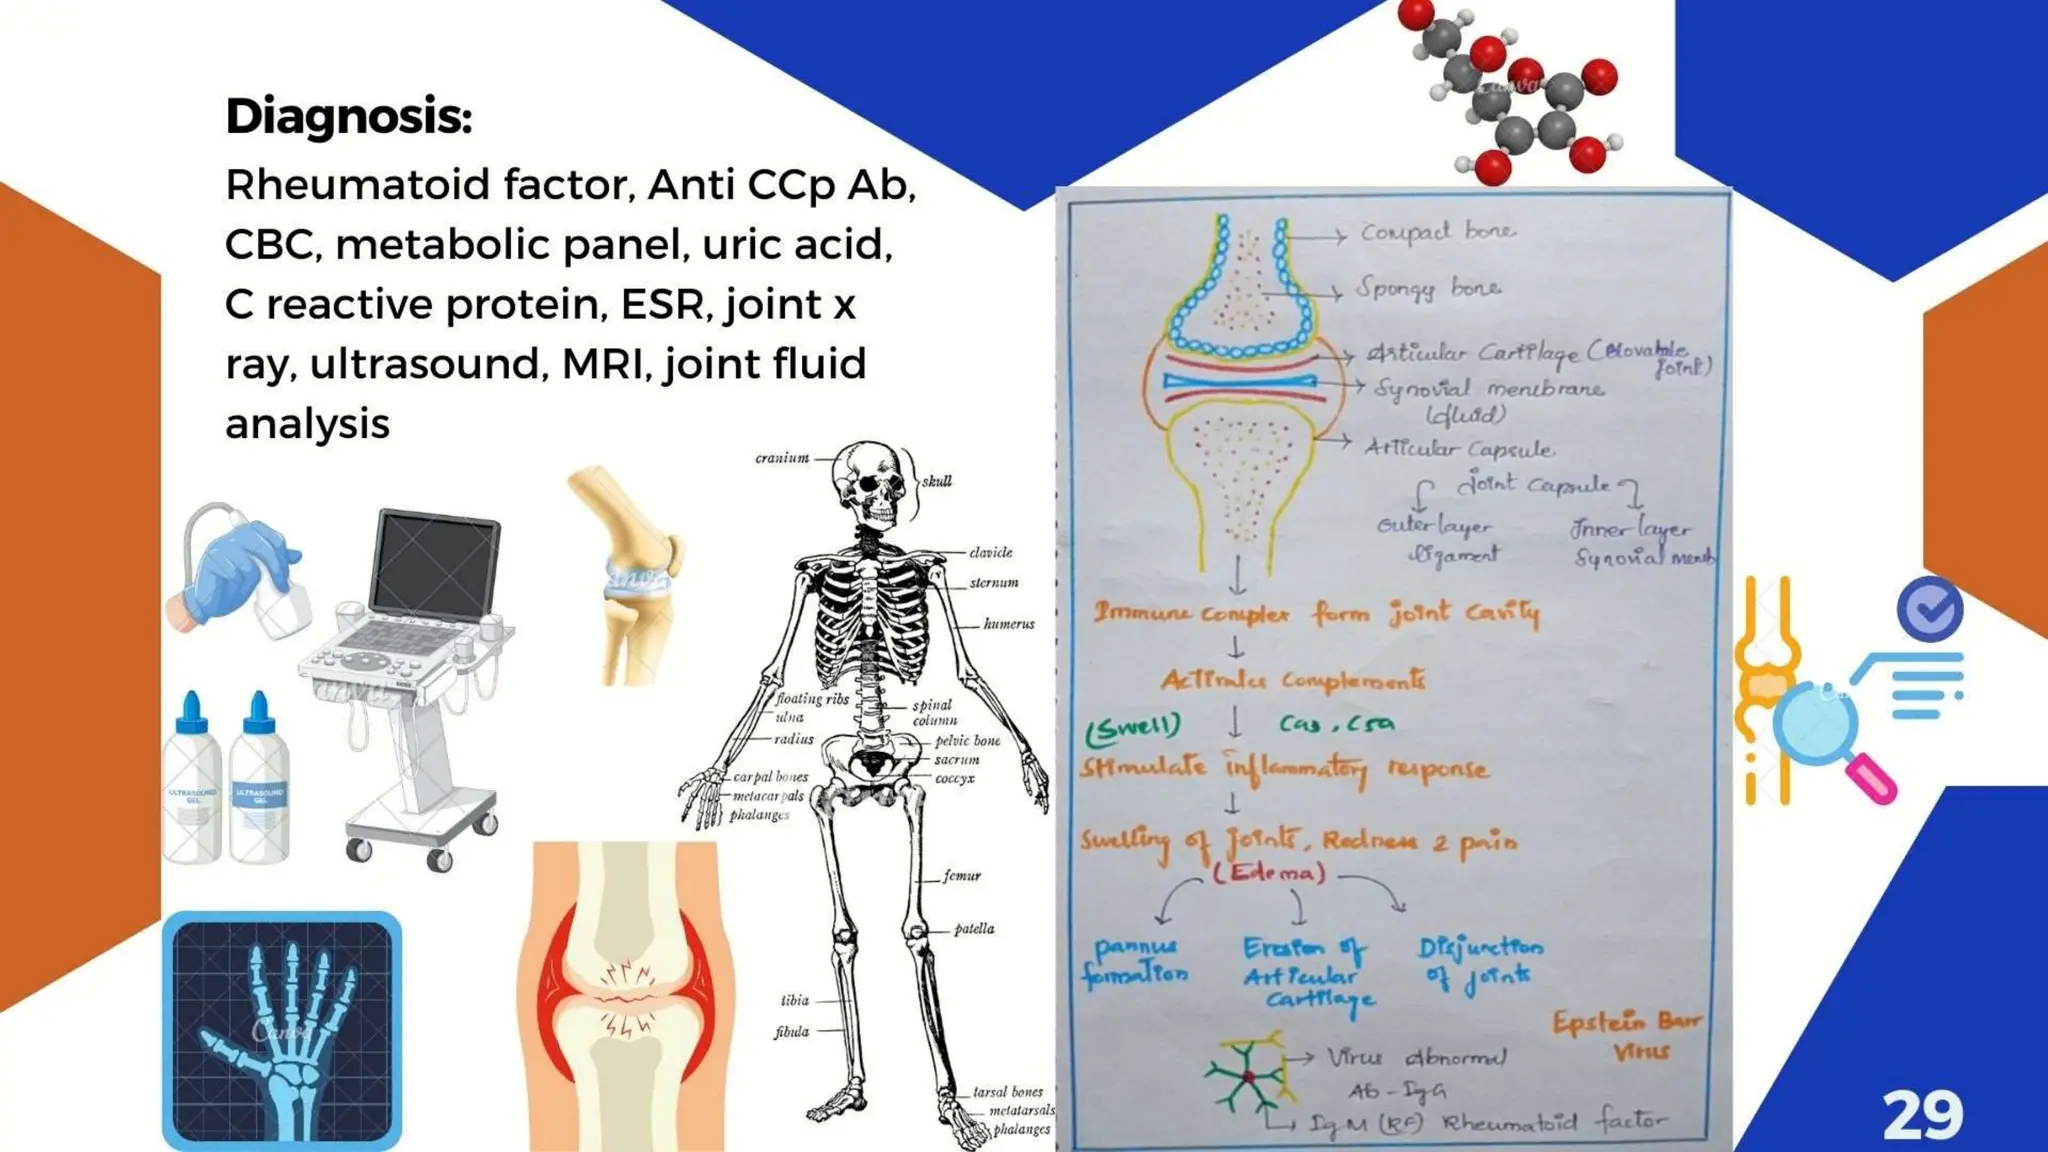 Diagnosis:
Rheumatoid factor, Anti CCp Ab,
CBC, metabolic panel, uric acid,
C reactive protein, ESR, joint x
ray, ultrasound, MRI, joint fluid
analysis
cranium
skull
clavicle
sternum
humerus
floating ribs
ulna
radius
spinal
column
pelvic bone
sacrum
coccyx
carpal bones
metacarpals
phalanges
femur
patella
tibia
fibula
tarsal bones
metatarsals
phalanges
ULTRASOUND
GEL
ULTRASOUND
GEL
Canva
Compact bone
Spongy bone
Articular Cartilage (Movable
joint)
Synovial membrane
(fluid)
Articular Capsule
joint capsule
outer layer
ligament
Inner layer
Synovial memb
Immune complex form joint cavity
Activates complements
(Swell)
C3a, C5a
Stimulate inflammatory response
Swelling of joints, Redness & pain
(Edema)
pannus
formation
Erosion of
Articular
Cartilage
Disjunction
of joints
Epstein Barr
Virus
Virus Abnormal
Ab - IgG
IgM (RF) Rheumatoid factor
29